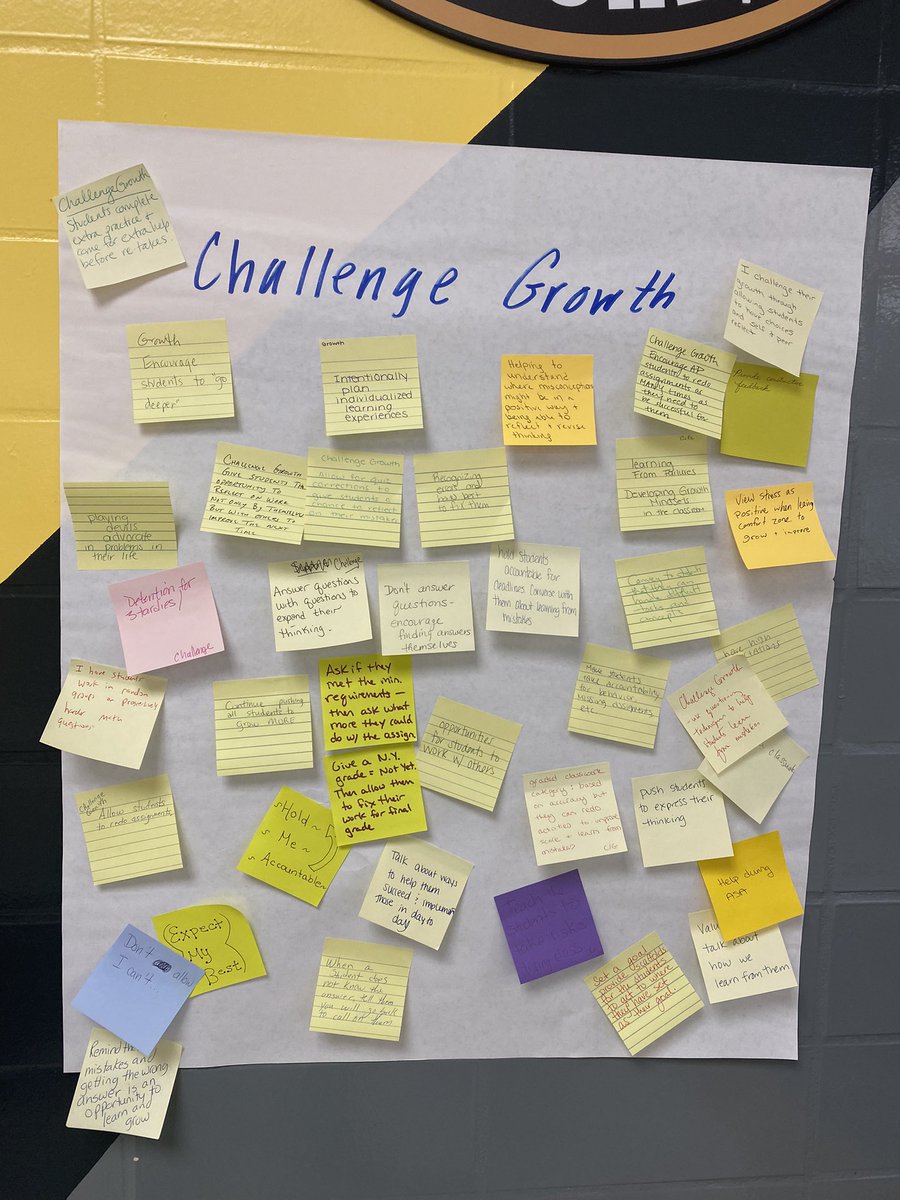 Challenge Growth
Challenge Growth
Students complete
extra practice +
come for extra help
before re takes.
I challenge their
growth through
allowing students
to have choices
and self + peer
reflect
Growth
Encourage
students to "go
deeper"
Growth
Intentionally
plan
individualized
learning
experiences
Helping to
understand
where misconceptions
might be in a
positive way +
being able to
reflect + revise
thinking
Challenge Growth
Encourage AP
students to redo
assignments as
MANY times as
they need to
be successful for
them
Provide constructive
feedback
playing
devils
advocate
in problems in
their life
Challenge Growth
Give students the
opportunity to
reflect on work
not only by themselves
but with others to
improve the next
time
Challenge Growth
Allow for quiz
corrections to
give students a
chance to reflect
on their mistakes
Recognizing
errors and
how best
to fix them
learning
From Failures
Developing Growth
Mindsets
in the classroom
View stress as
positive when leaving
comfort zone to
grow + improve
Detention for
3 tardies!
Challenge
Challenge
Answer questions
with questions to
expand their
thinking.
Don't answer
questions-
encourage
finding answers
themselves
hold students
accountable for
deadlines. Converse with
them about learning from
mistakes
concepts
have high
I have students
work in random
groups on progressively
harder math
questions
Continue pushing
all students to
grow MORE
Ask if they
met the min.
requirements —
then ask what
more they could
do w/ the assign.
opportunities
for students to
work w/ others
Make students
take accountability
for behavior
missing assignments,
etc.
Challenge Growth
use questioning
techniques to help
students learn
from mistakes
Challenge
Growth
Allow students
to redo assignments
Hold
Me
Accountable
Give a N.Y.
grade = Not Yet.
Then allow them
to fix their
work for final
grade
Talk about ways
to help them
succeed & implement
those in day to
day
graded classwork
category; based
on accuracy but
they can redo
activities to improve
score + learn from
mistakes
CIG
push students
to express their
thinking
Help during
Don't allow
I can't...
Expect
My
Best
When a
student does
not know the
answer, tell them
you will go back
to call on them
Set a goal
provide scaffolds
for the students
to get to where
they have set
as their goal.
talk about
how we
learn from them
mistakes and
getting the wrong
answer is an
opportunity to
learn and
grow